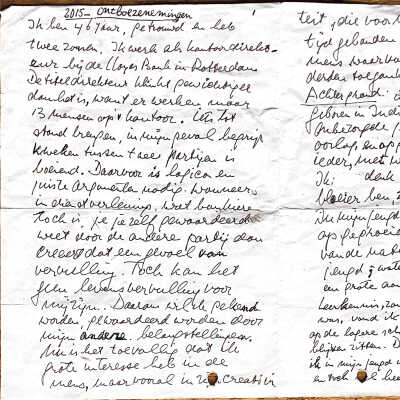 2015 - ontboezemingen
Ik ben 46 jaar, getrouwd en heb
twee zonen. Ik werk als kantoordirekt-
eur bij de Lloyds Bank in Rotterdam
De titel direkteur klinkt gewichtiger
dan het is, want er werken maar
13 mensen op 't kantoor. Iets tot
stand brengen, in mijn geval begrip
kweken tussen twee partijen is
boeiend. Daarvoor is logica en
juiste argumenten nodig. Wanneer
in kredietverlening, wat bankiere
toch is, je jezelf gewaardeerd
weet door de andere partij dan
creëert dat een gevoel van
vervulling. Toch kan het
geen levensvervulling voor
mij zijn. Daarom wil ik gekend
worden, gewaardeerd worden door
mijn andere belangstellingen.
Nu is het toevallig dat ik
grote interesse heb in de
mens, maar vooral in zijn creativi
teit, die voor
tijd gebonden
mens waarvan
derden toegank
Achtergrond:
geboren in Indi
oorlog, en op
ieder, met
Ik: denk
ben,
In mijn jeugd
opgegroeid
van de na
jeugd, wat
en grote aan
was, vond ik
op de lagere sch
blijven zitten. D
ik in mijn jeugd
en toch